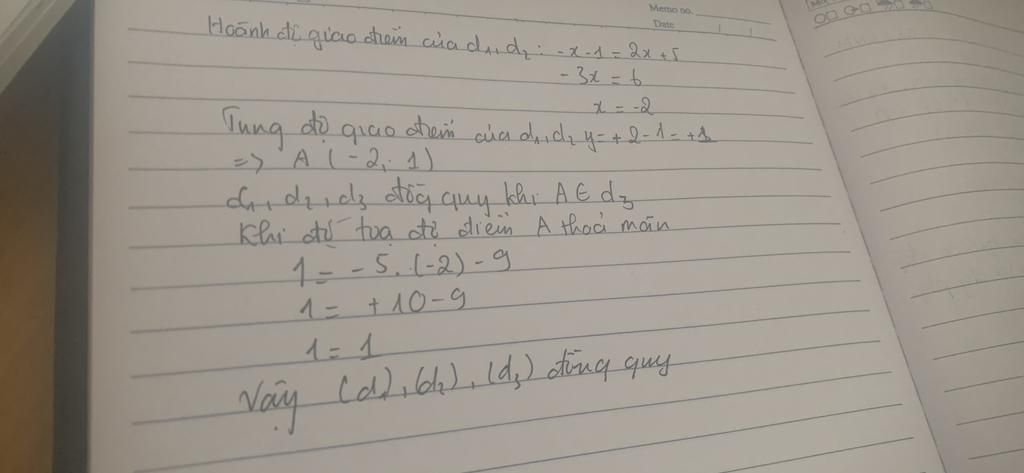 Memo no.
Date
Hoành độ giao điểm của d₁, d₂: -x - 1 = 2x + 5
-3x = 6
x = -2
Tung độ giao điểm của d₁, d₂ y = + 2 - 1 = +1
=> A (-2; 1)
d₁, d₂, d₃ đồng quy khi A ∈ d₃
Khi đó toạ độ điểm A thoả mãn
1 = -5. (-2) - 9
1 = +10 - 9
1 = 1
Vậy (d₁), (d₂), (d₃) đồng quy